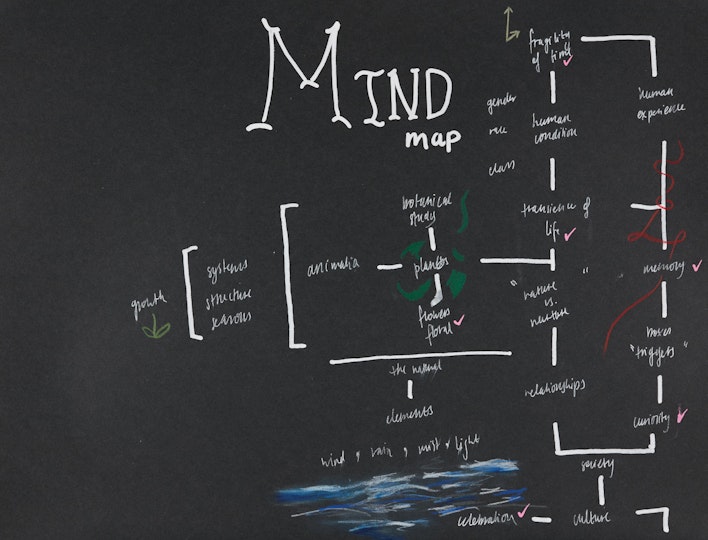 MIND
map
fragility
of time
human
experience
gender
race
class
human
condition
transience of
life
botanical
study
animalia
plants
systems
structure
seasons
growth
flowers
floral
" nature "
vs.
nurture
memory
"triggers"
the natural
elements
relationships
curiosity
wind , rain , mist , light
society
celebration
culture